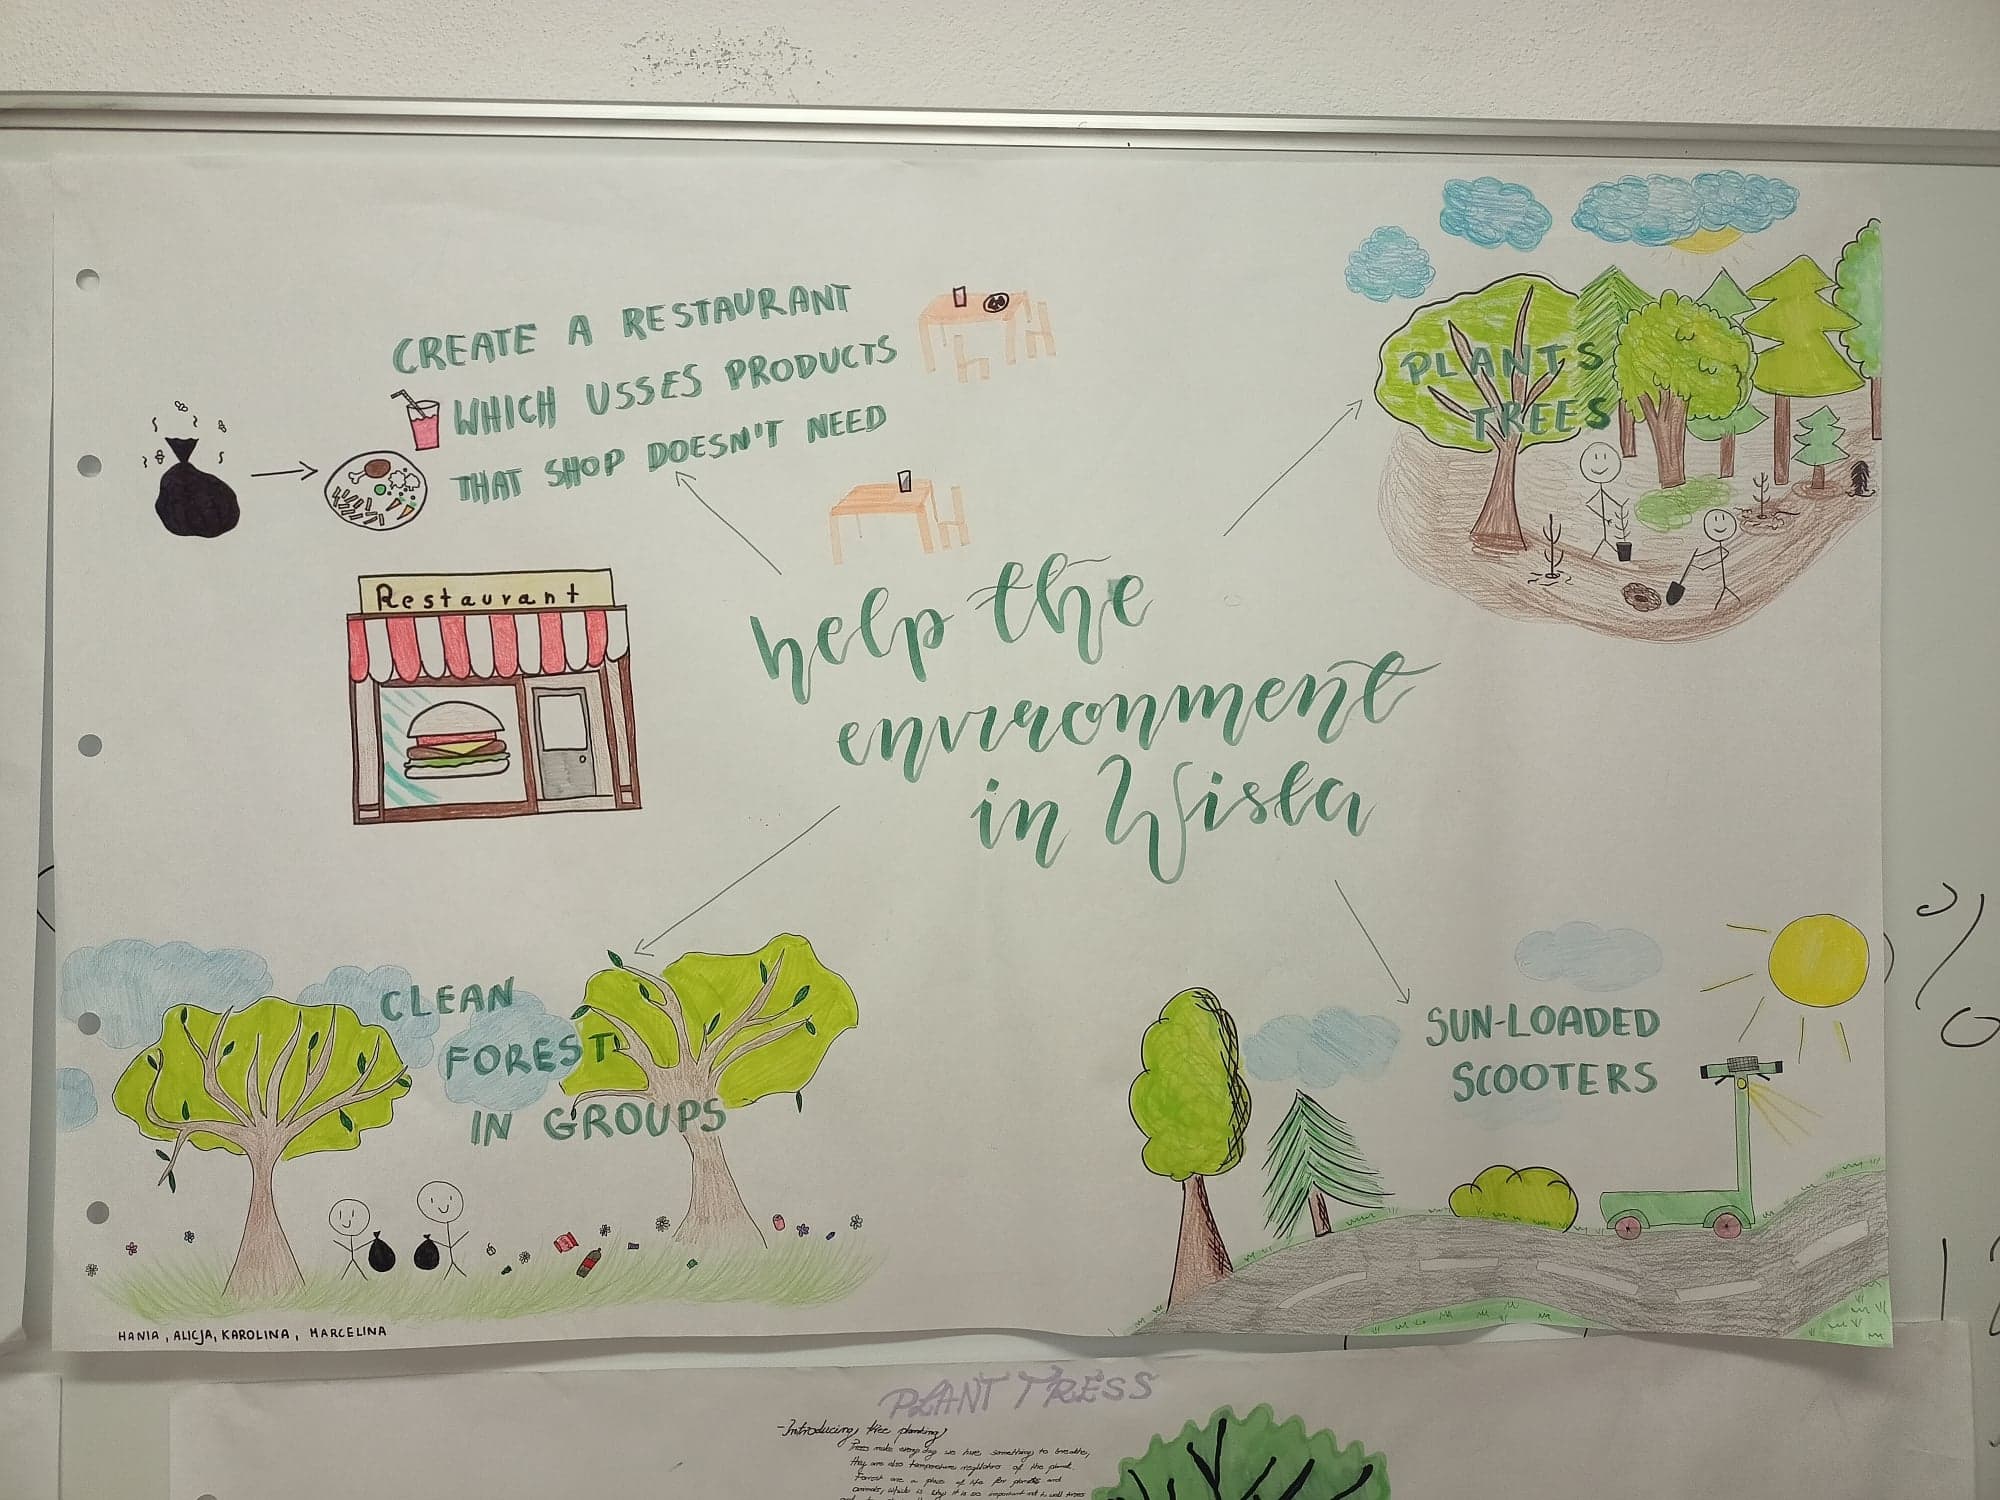 CREATE A RESTAURANT
WHICH USSES PRODUCTS
THAT SHOP DOESN'T NEED
Restaurant
PLANTS
TREES
help the
environment
in Wisła
CLEAN
FOREST
IN GROUPS
SUN-LOADED
SCOOTERS
HANIA, ALICJA, KAROLINA, MARCELINA
%
PLANT TRESS
-Introducing tree planking
Trees make every day we have something to breathe,
they are also temperature regulators of the planet.
Forest are a place of life for planets and
animals, which is why it is so important not to